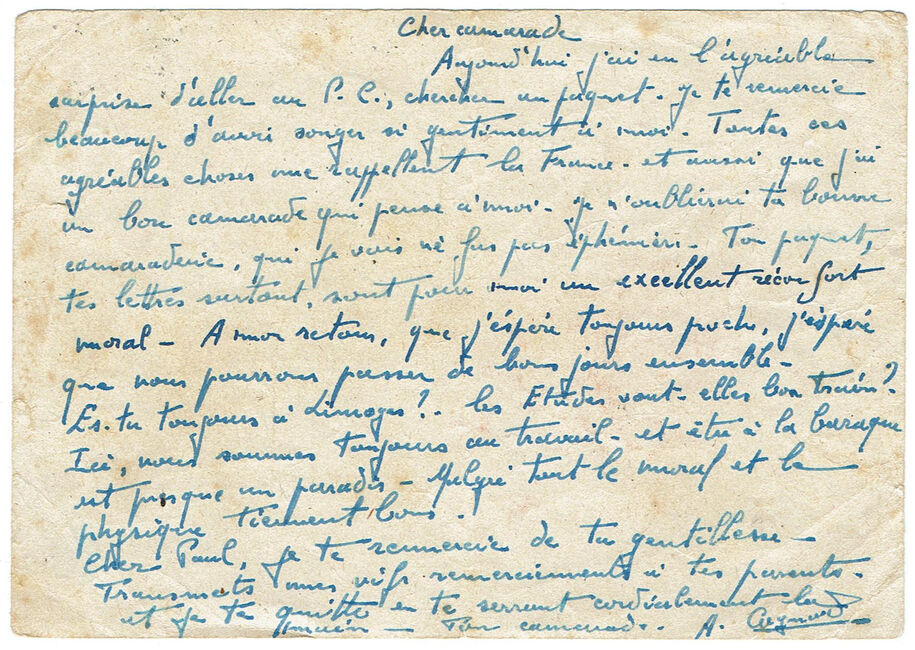 Cher camarade
Aujourd'hui j'ai eu l'agréable
surprise d'aller au P. C., chercher un paquet. Je te remercie
beaucoup d'avoir songer si gentiment à moi. Toutes ces
agréables choses me rappellent la France. et aussi que j'ai
un bon camarade qui pense à moi. Je n'oublierai ta bonne
camaraderie, qui je vois pas éphémère. Ton paquet,
tes lettres surtout, sont pour moi un excellent réconfort
moral - A mon retour, que j'éspère toujours proche, j'éspère
que nous pourrons passer de bons jours ensemble -
Es-tu toujours à Limoges ?. les Etudes vont-elles bon train ?
Ici, nous sommes toujours au travail - et être à la baraque
est presque un paradis - Malgré tout le moral et le
physique tiennent bons.
Cher Paul, je te remercie de ta gentillesse -
Transmets mes vifs remerciements à tes parents.
et je te quitte en te serrant cordialement la
main - Ton camarade. A.